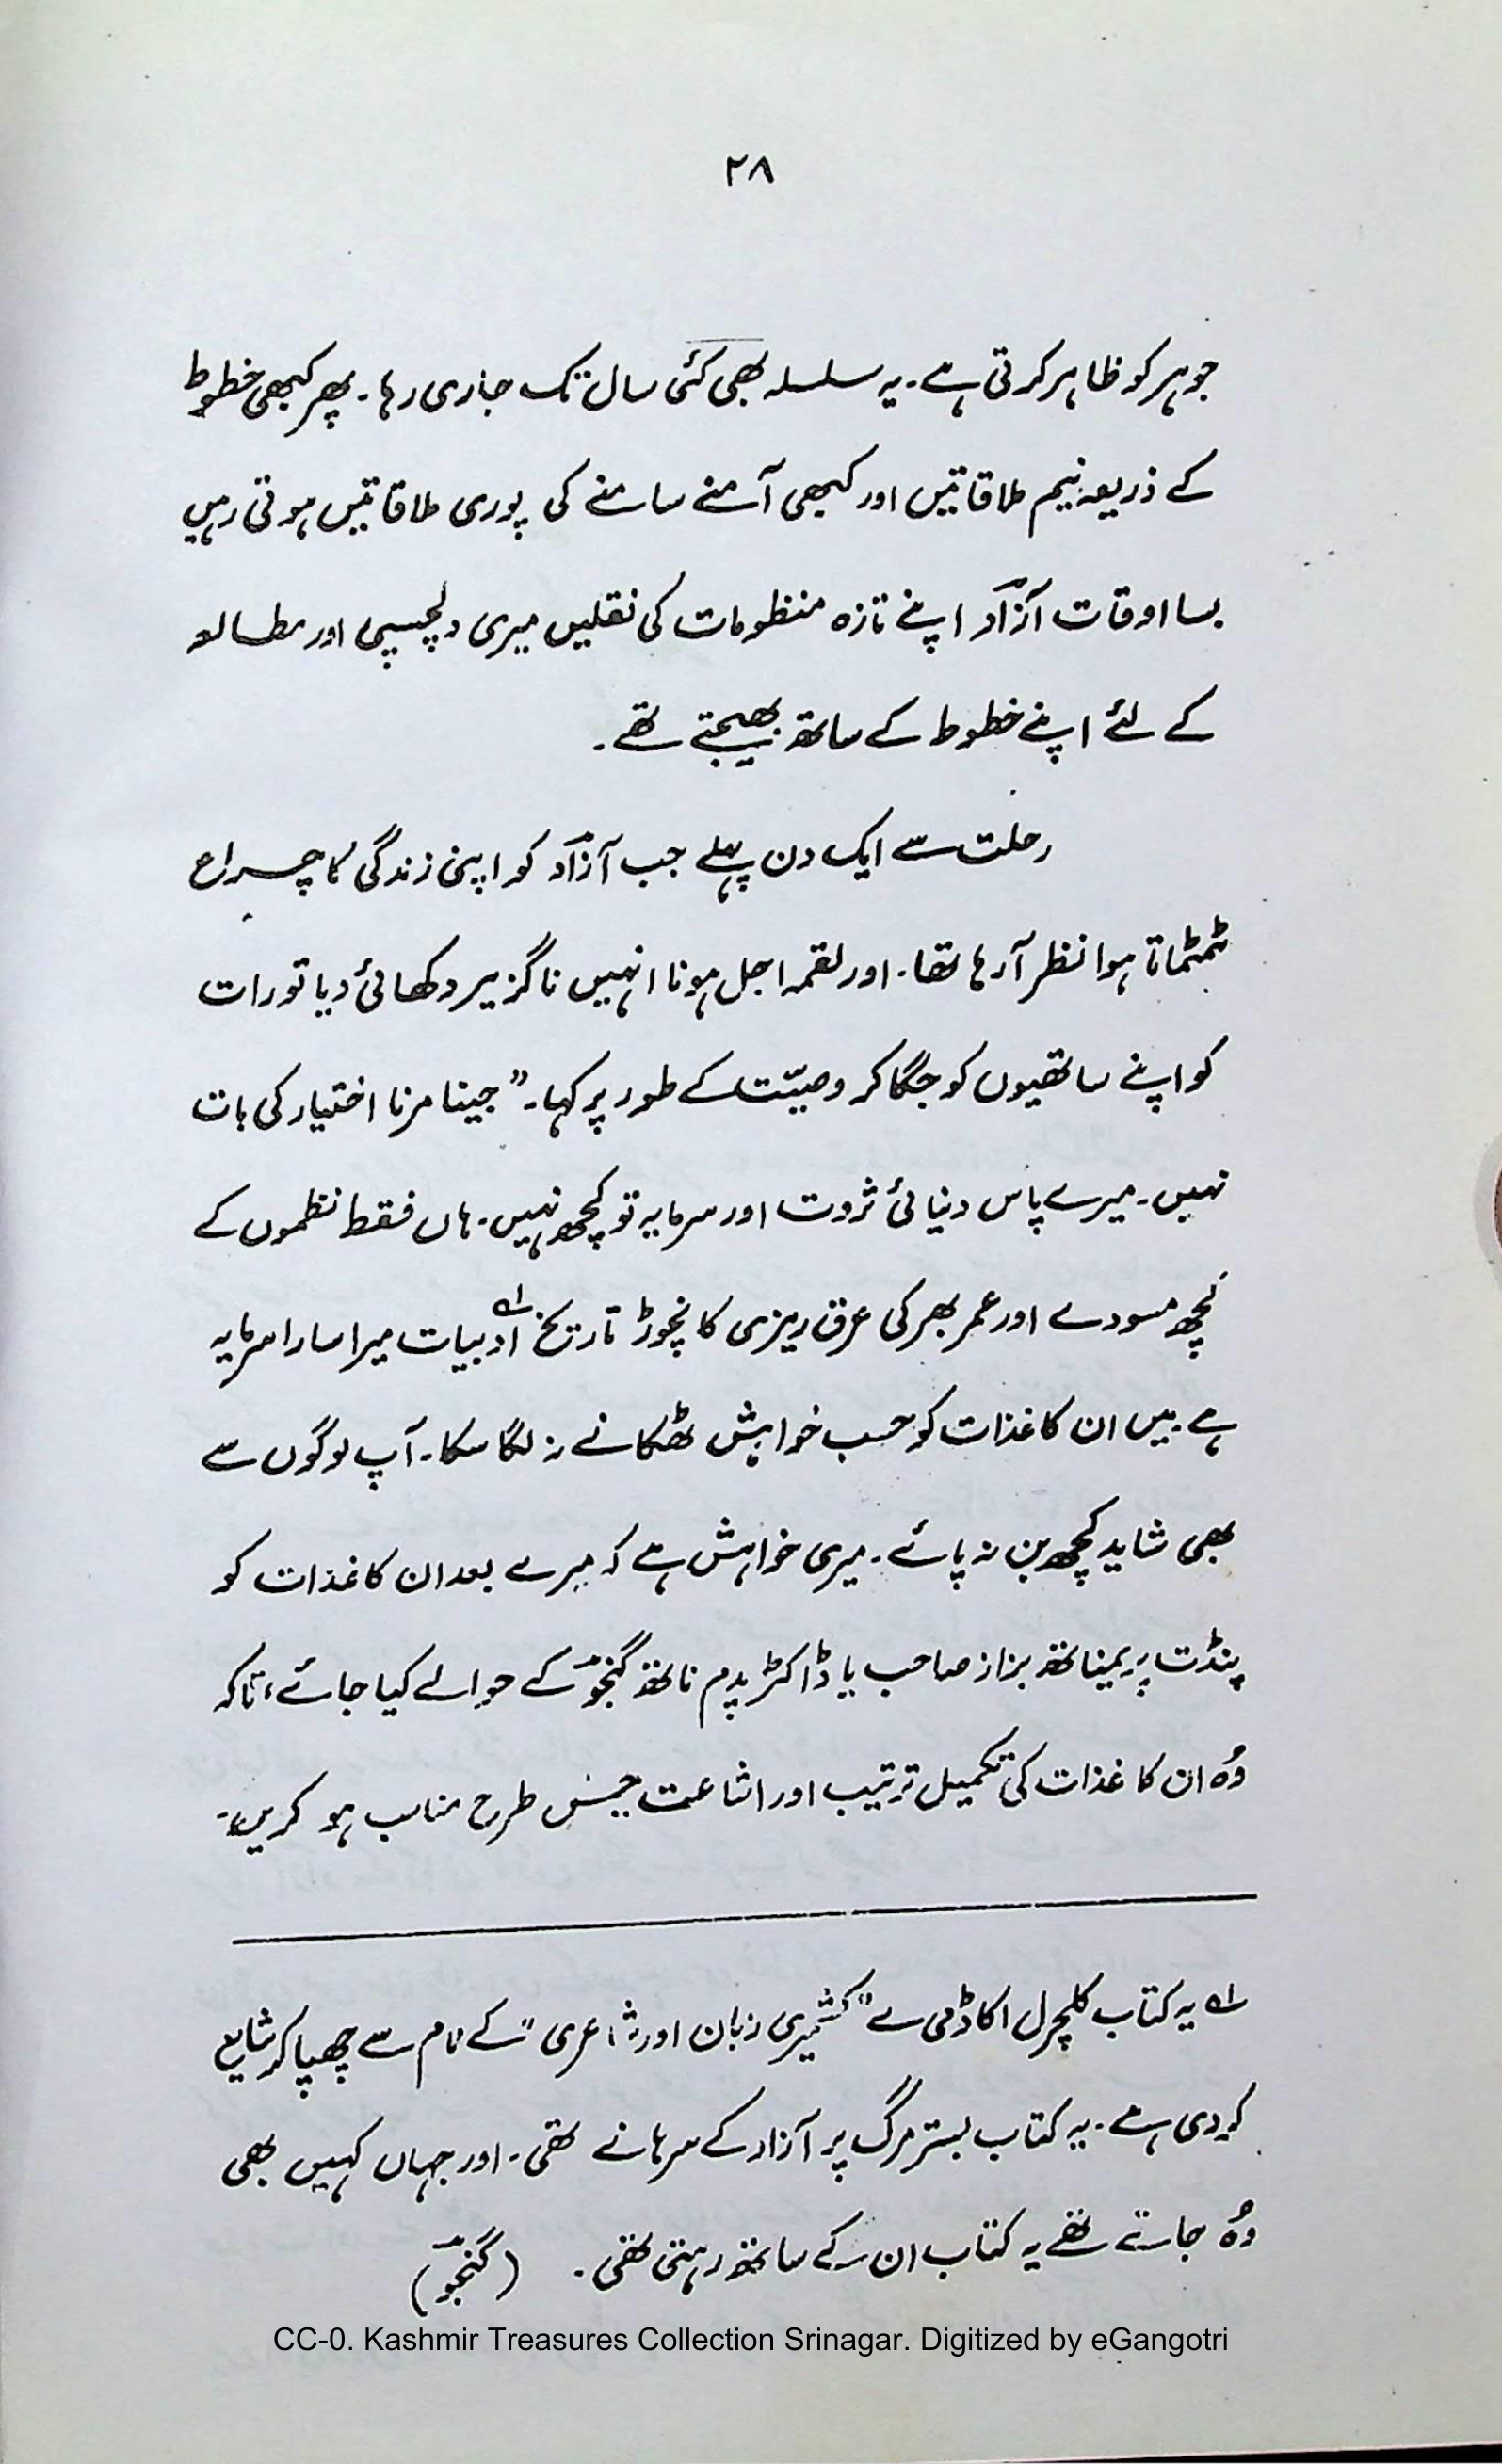 ۲۸
جوہر کو ظاہر کرتی ہے۔ یہ سلسلہ بھی کئی سال تک جاری رہا۔ پھر کبھی خطوط
کے ذریعہ نیم ملاقاتیں اور کبھی آمنے سامنے کی پوری ملاقاتیں ہوتی رہیں
بسا اوقات آزادؔ اپنے تازہ منظومات کی نقلیں میری دلچسپی اور مطالعہ
کے لئے اپنے خطوط کے ساتھ بھیجتے تھے۔
رحلت سے ایک دن پہلے جب آزادؔ کو اپنی زندگی کا چراغ
ٹمٹماتا ہوا نظر آرہا تھا۔ اور لقمہ اجل ہونا انہیں ناگزیر دکھائی دیا تو رات
کو اپنے ساتھیوں کو جگا کر وصیّت کے طور پر کہا۔ ”جینا مرنا اختیار کی بات
نہیں۔ میرے پاس دنیائی ثروت اور سرمایہ تو کچھ نہیں۔ ہاں فقط نظموں کے
کچھ مسودے اور عمر بھر کی عرق ریزی کا نچوڑ تاریخ ادبیات لہ میرا سارا سرمایہ
ہے۔ میں ان کاغذات کو حسب خواہش ٹھکانے نہ لگا سکا۔ آپ لوگوں سے
بھی شاید کچھ بن نہ پائے۔ میری خواہش ہے کہ میرے بعد ان کاغذات کو
پنڈت پریمناتھ بزاز صاحب یا ڈاکٹر پدم ناتھ گنجوؔ کے حوالے کیا جائے، تاکہ
وُہ ان کاغذات کی تکمیل ترتیب اور اشاعت جس طرح مناسب ہو کریں“۔
لہ یہ کتاب کلچرل اکاڈمی نے ”کشمیری زبان اور شاعری“ کے نام سے چھپا کر شایع
کردی ہے۔ یہ کتاب بستر مرگ پر آزاد کے سرہانے تھی۔ اور جہاں کہیں بھی
وُہ جاتے تھے یہ کتاب ان کے ساتھ رہتی تھی۔ (گنجوؔ)
CC-0. Kashmir Treasures Collection Srinagar. Digitized by eGangotri